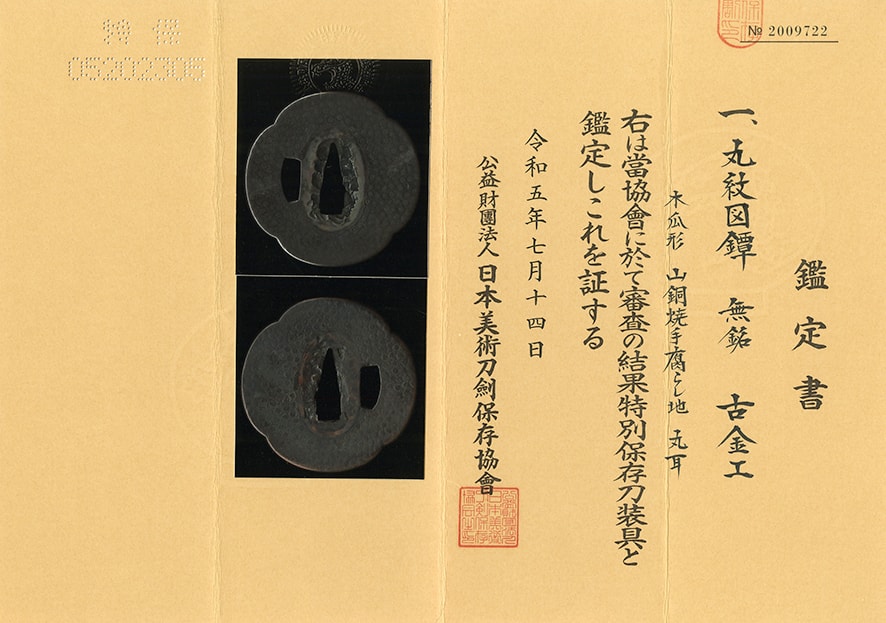 № 2009722
鑑定書
一、丸紋図鐔 無銘 古金工
木瓜形 山銅焼手腐らし地 丸耳
右は當協會に於て審査の結果特別保存刀装具と
鑑定しこれを証する
令和五年七月十四日
公益財團法人 日本美術刀劍保存協會
特保
05202305